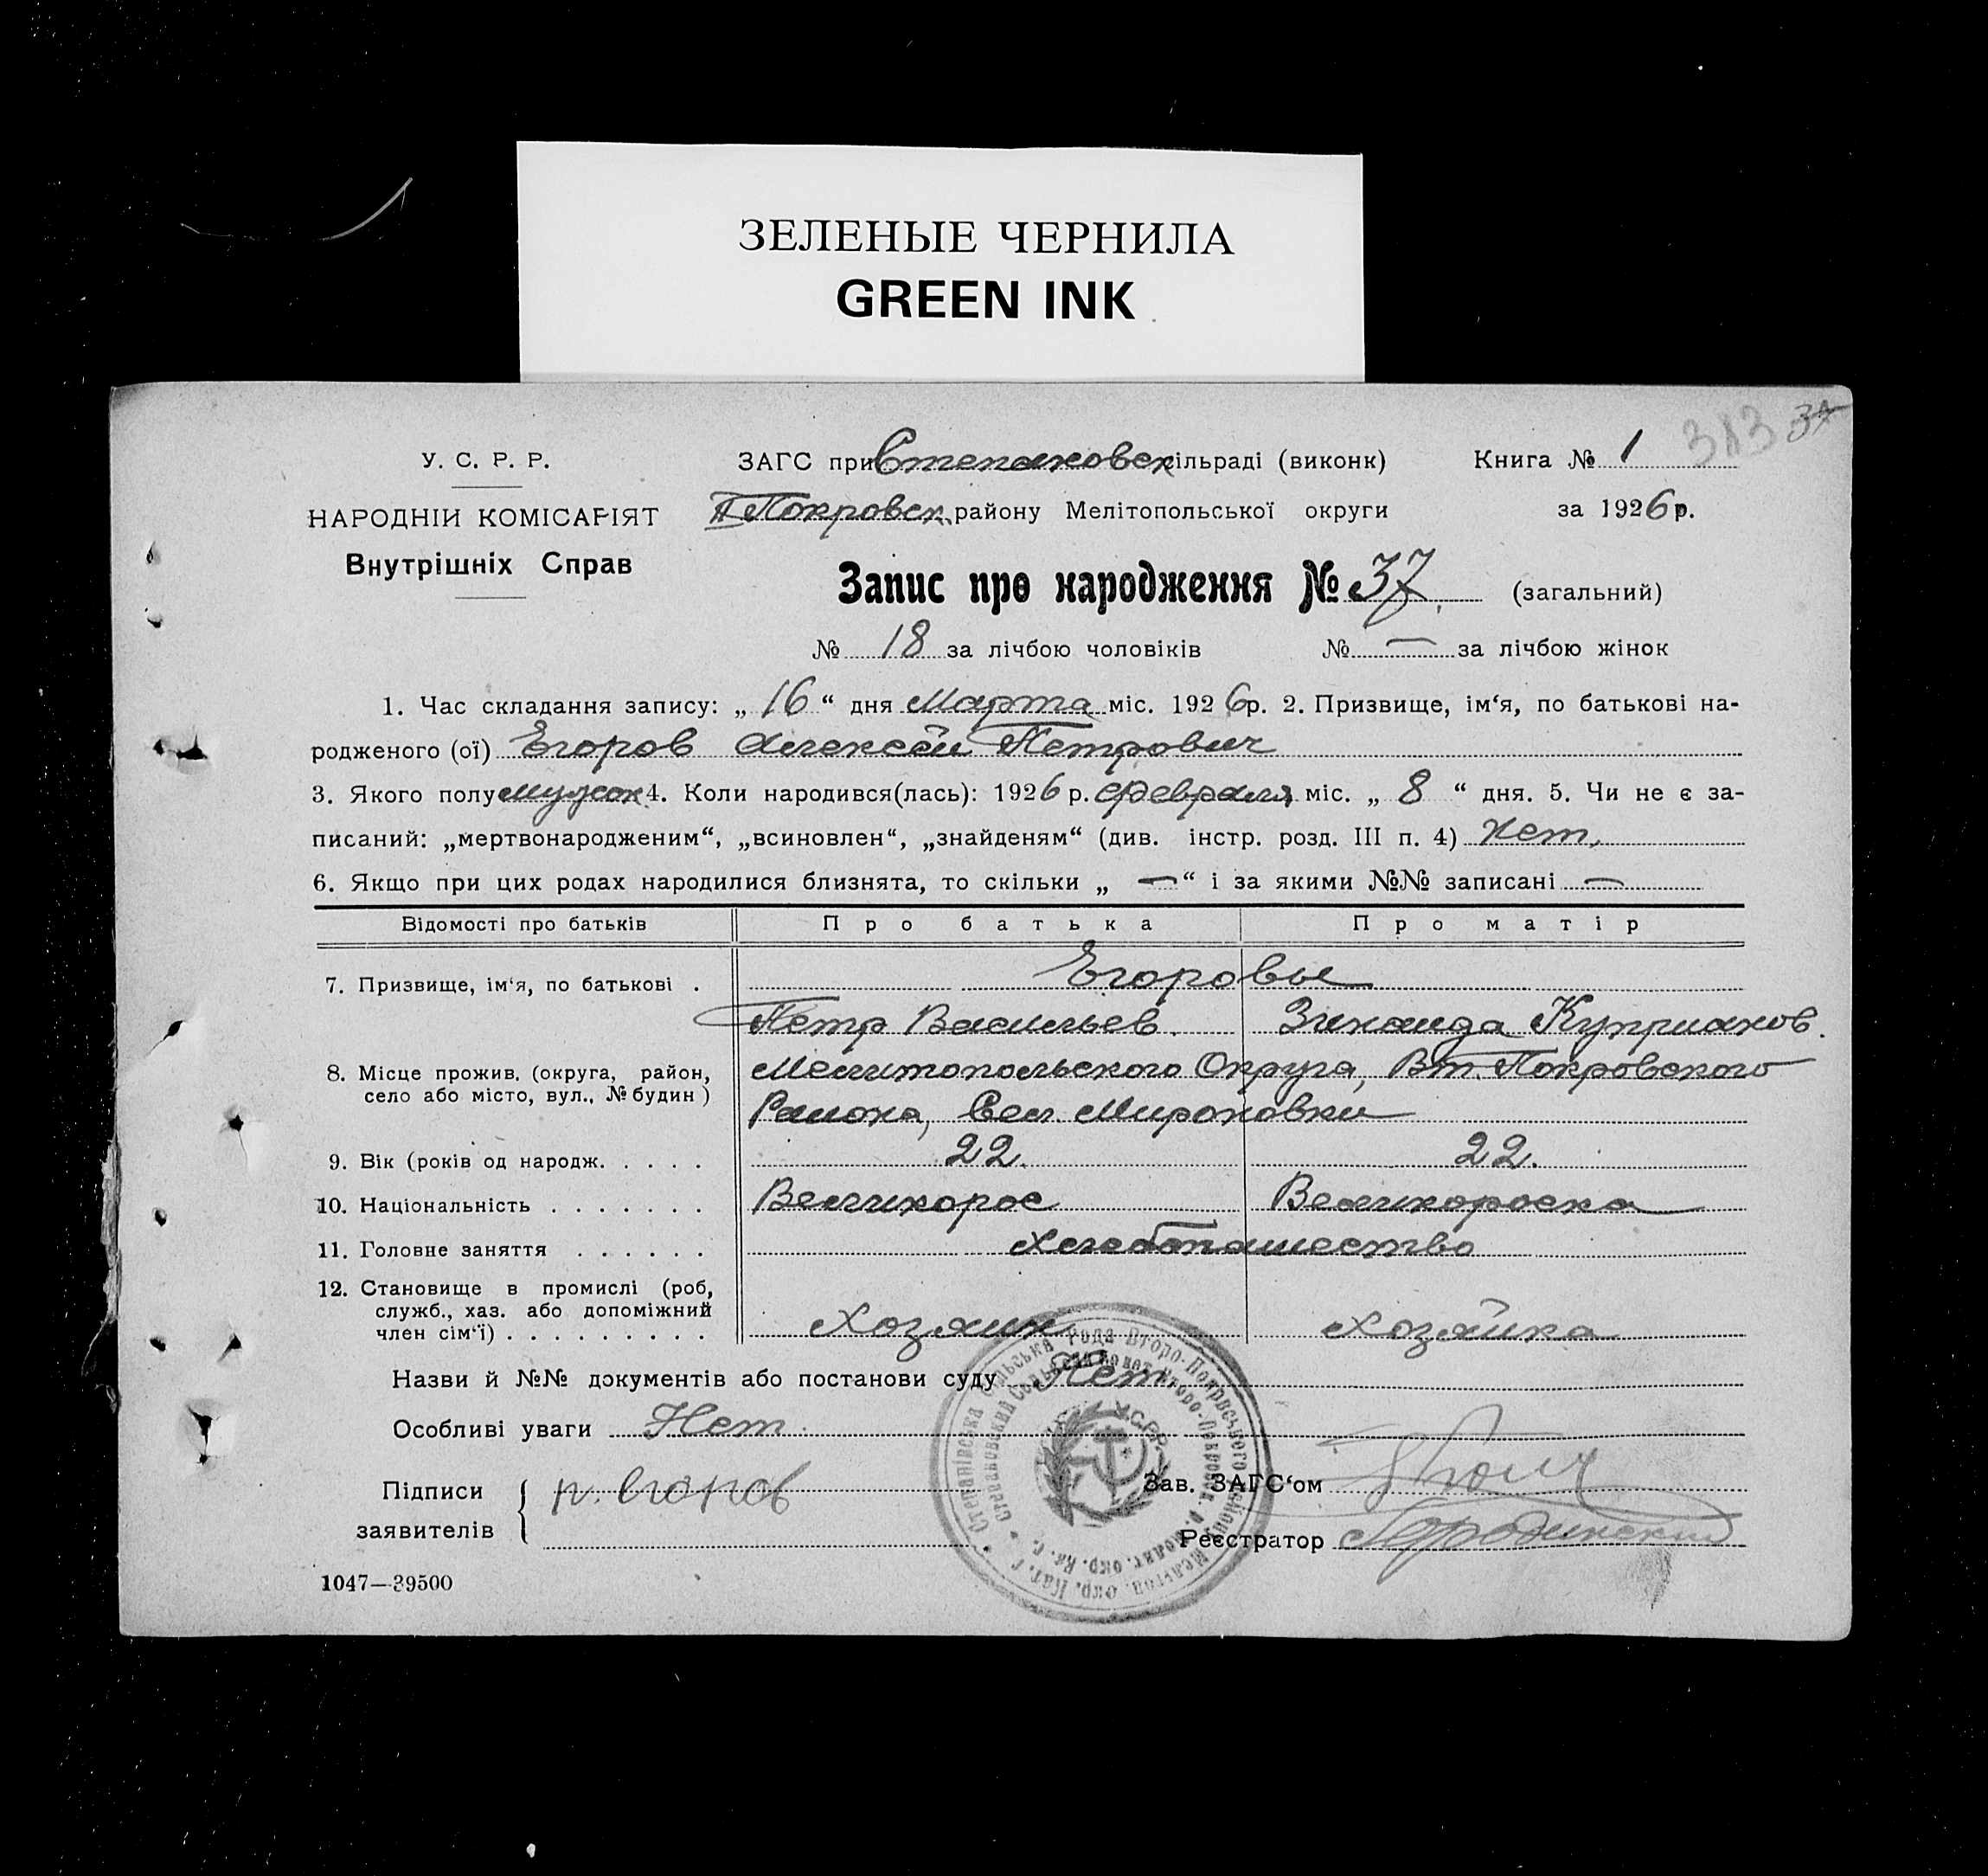 ЗЕЛЕНЫЕ ЧЕРНИЛА
GREEN INK
313 37
У. С. Р. Р.
ЗАГС при Степановск сільраді (виконк)
Книга № 1
НАРОДНІЙ КОМІСАРІЯТ
II Покровск. району Мелітопольської округи
за 1926 р.
Внутрішніх Справ
Запис про народження № 37. (загальний)
№ 18 за лічбою чоловіків № — за лічбою жінок
1. Час складання запису: „ 16 “ дня Марта міс. 1926 р. 2. Призвище, ім‘я, по батькові на-
родженого (ої) Егоров Алексей Петрович
3. Якого полу мужск. 4. Коли народився(лась): 1926 р. февраля міс. „ 8 “ дня. 5. Чи не є за-
писаний: „мертвонародженим“, „всиновлен“, „знайденям“ (див. інстр. розд. III п. 4) Нет,
6. Якщо при цих родах народилися близнята, то скільки „ — “ і за якими №№ записані —
Відомості про батьків Про батька Про матір
7. Призвище, ім‘я, по батькові . Егоровы
Петр Васильев. Зинаида Куприянов.
8. Місце прожив. (округа, район, Мелитопольского Округа, Вт. Покровского
село або місто, вул., № будин) Раиона, Сел. Мироновки
9. Вік (років од народж. . . . . 22. 22.
10. Національність . . . . . . . Великорос Великороска
11. Головне заняття . . . . . . Хлебопашество
12. Становище в промислі (роб,
служб., хаз. або допоміжний
член сім‘ї) . . . . . . . . . Хозяин Хозяйка
Назви й №№ документів або постанови суду Нет.
Особливі уваги Нет.
Підписи
заявителів
п. Егоров
Зав. ЗАГС‘ом
Реєстратор Городинский
У.С.Р.Р.
1047—39500